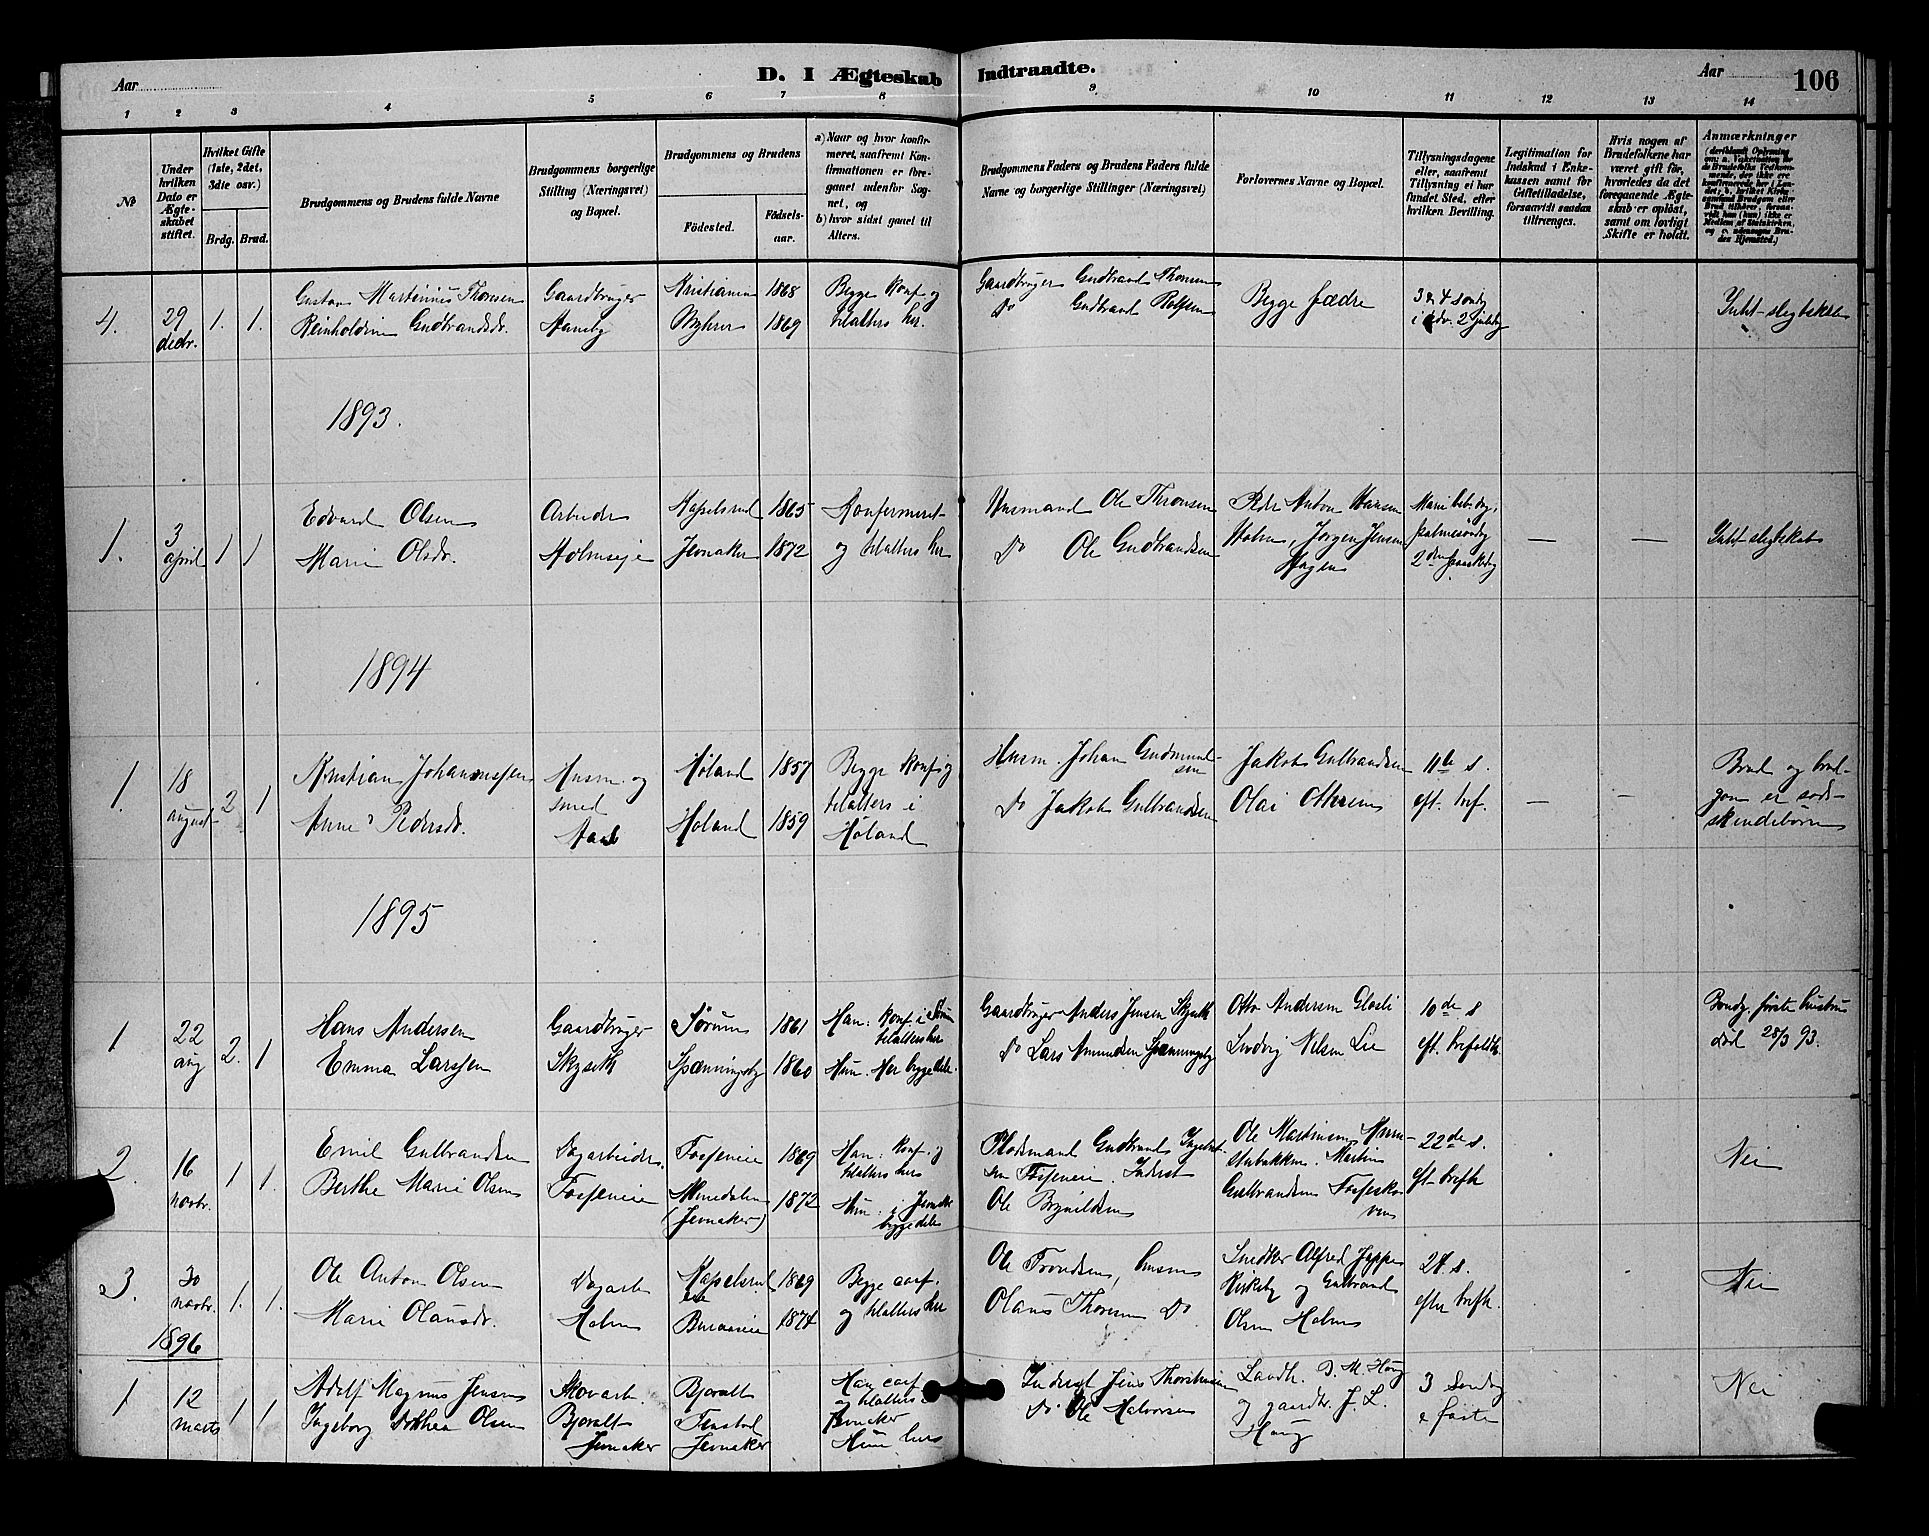 Aar
D. I Ægteskab Indtraadte.
Aar 106
1 2 3 4 5 6 7 8 9 10 11 12 13 14
No
Under hvilken Dato er Ægteskabet stiftet.
Hvilket Gifte (1ste, 2det, 3die osv.)
Brdg. Brud.
Brudgommens og Brudens fulde Navne
Brudgommens borgerlige Stilling (Næringsvei) og Bopæl.
Brudgommens og Brudens
Födested.
Födselsaar.
a) Naar og hvor konfirmeret, saafremt Konfirmationen er foregaaet udenfor Sognet, og
b) hvor sidst gaaet til Alters.
Brudgommens Faders og Brudens Faders fulde Navne og borgerlige Stillinger (Næringsvei)
Forlovernes Navne og Bopæl.
Tillysningsdagene eller, saafremt Tillysning ei har fundet Sted, efter hvilken Bevilling.
Legitimation for Indskud i Enkekassen samt for Giftetilladelse, forsaavidt saadan tiltrænges.
Hvis nogen af Brudefolkene har været gift för, hvorledes da det foregaaende Ægteskab er oplöst, samt om lovligt Skifte er holdt.
Anmærkninger
4. 29 decbr. 1. 1.
Gustav Martinius Thoresen
Reinholdine Gudbrandsdr.
Gaardbruger
Kristianen 1868
Myhrer 1869
Begge konf og
til alters her.
Gaardbruger Gudbrand Thoresen
Do Gudbrand Rolfsen
Begge fædre
3 & 4 sønd.
i adv. 2 juledag
Intet slegtskab
1893.
1. 3 april 1 1
Edvard Olsen
Marie Olsdr.
Arbeider
Holmseje
Kapelsrud 1865
Jevnaker 1872
Konfirmeret
og til alters her
Husmand Ole Thronsen
Do Ole Gudbrandsen
Peder Anton Hansen
Holm, Jørgen Jensen
Hagen
Marie beb.dag,
palmesøndg
2den paaskedag
— —
Intet slegtskab
1894
1. 18 august 2 1
Kristian Johannessen
Anne Pedersdr.
Husm. og
smed
Høland 1857
Høland 1859
Begge konf og
til alters i
Høland
Husm. Johan Gudmundsen
Do Jakob Gulbrandsen
Jakob Gulbrandsen
Olai Othersen
11te s.
eft. tref.
— —
Brud og brudgom er sødskendebørn
1895
1 22 aug 2. 1
Hans Andersen
Emma Larssen
Gaardbruger
Skyseth
Sørum 1861
Spænningsby 1860
Han: konf i Sørum
til alters her
Hun: Her begge dele.
Gaardbruger Anders Jensen Skyseth
Do Lars Amundsen Spænningsby
Otto Andersen Glosli
Ludvig Nilsen Lie
10de s
eft. trefoldh.
Brudg. første hustru
død 28/3 93.
2. 16 novbr. 1 1.
Emil Gulbrandsen
Berthe Marie Olsen
Dagarbeider
Fosseneie
Fosseneie 1869
(Jevnaker) 1872
Han: konf. og
til alters her
Hun: i Jevnaker
begge dele
Flodemand Gudbrand
Fosseneie. Inderst
Ole Brynildsen
Ole Martinsen
Martin
Gulbrandsen
22de s.
eft. trefh
Nei
3. 30 novbr. 1. 1.
Ole Anton Olsen
Marie Olausdr.
Dagarb
Holm
Kapelsrud 1869
eie
1874
Begge conf.
og til alters her
Ole Trondsen, husm
Olaus Thoresen Do
Snedker Alfred Jeppes
Kirkeby og Gulbrand
Olsen Holm
24. s.
efter trefh.
Nei
1896
1 12 marts 1 1
Adolf Magnus Jensen
Ingeborg Dorthea Olsen
Skovarb.
Bjoralt
Jevnaker
Bjoralt
Jevnaker
Han conf
og til alters i
Jevnaker
Hun her
Inderst Jens Thorstensen
Do Ole Halvorsen
Landh. O. M. Haug
og gaardbr. J. L.
Haug
3 Søndag
i faste
Nei